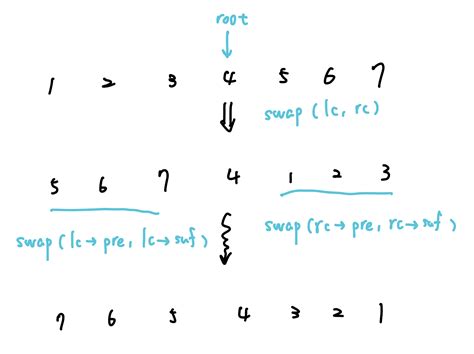 root
1 2 3 4 5 6 7
swap (lc, rc)
5 6 7 4 1 2 3
swap (lc→pre, lc→suf)
swap (rc→pre, rc→suf)
7 6 5 4 3 2 1